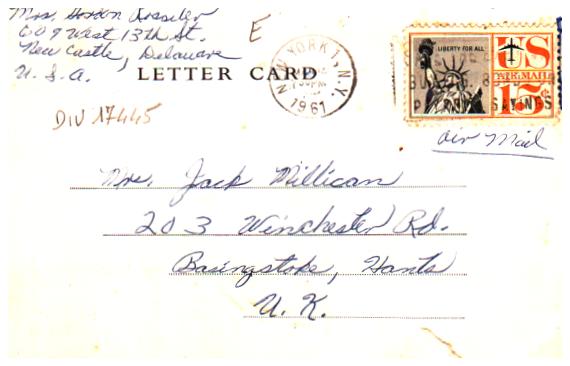 Mrs. Gordon Rossiter
609 West 13th St.
New Castle, Delaware
U. S. A.
E
LETTER CARD
DIV 17445
NEW YORK 1, N.Y.
PM
1961
LIBERTY FOR ALL
US
AIR MAIL
15¢
SAVINGS
Air Mail
Mrs. Jack Millican
203 Winchester Rd.
Basingstoke, Hants
U. K.